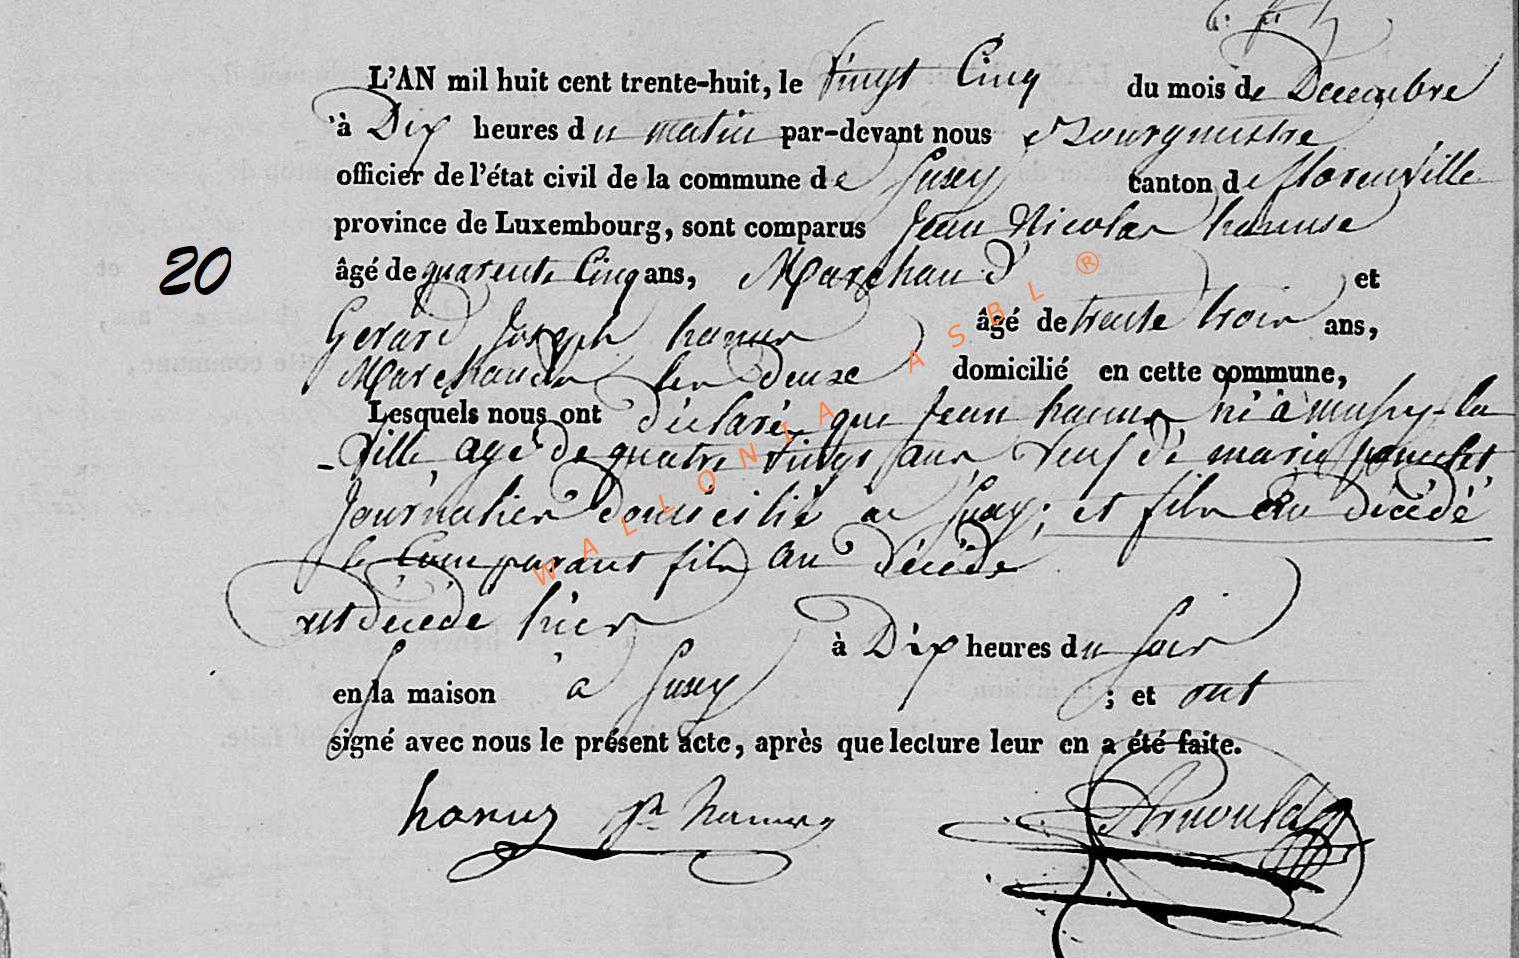 L'AN mil huit cent trente-huit, le vingt Cinq du mois de Decembre
à Dix heures du matin par-devant nous Bourgmestre
officier de l'état civil de la commune de Suxy canton de florenville
province de Luxembourg, sont comparus Jean Nicolas hanuse
20 âgé de quarente Cinq ans, Marchand et
Gerard Joseph hanus âgé de trente trois ans,
Marchands les deux domicilié en cette commune,
Lesquels nous ont déclaré que Jean hanus né à mussy-la
-ville agé de quatre vingt ans veuf de marie
Journalier domicilié a Suxy; et fils du décédé
le Comparant fils au décédé
est décédé hier à Dix heures du soir
en la maison à Suxy ; et ont
signé avec nous le présent acte, après que lecture leur en a été faite.
hanus hanus Arnould
WALLONIA ASBL ®